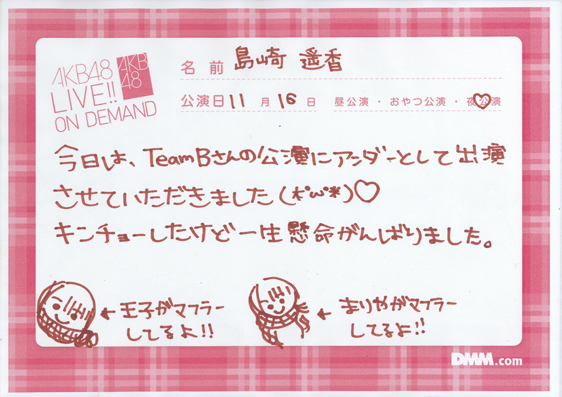 AKB48
LIVE!!
ON DEMAND
AKB
48
名前 島崎 遥香
公演日 11 月 16 日 昼公演・おやつ公演・夜公演
今日は、TeamBさんの公演にアンダーとして出演
させていただきました(*´ω`*)♡
キンチョーしたけど一生懸命がんばりました。
←王子がマフラー
してるよ!!
←まりやがマフラー
してるよ!!
DMM.com